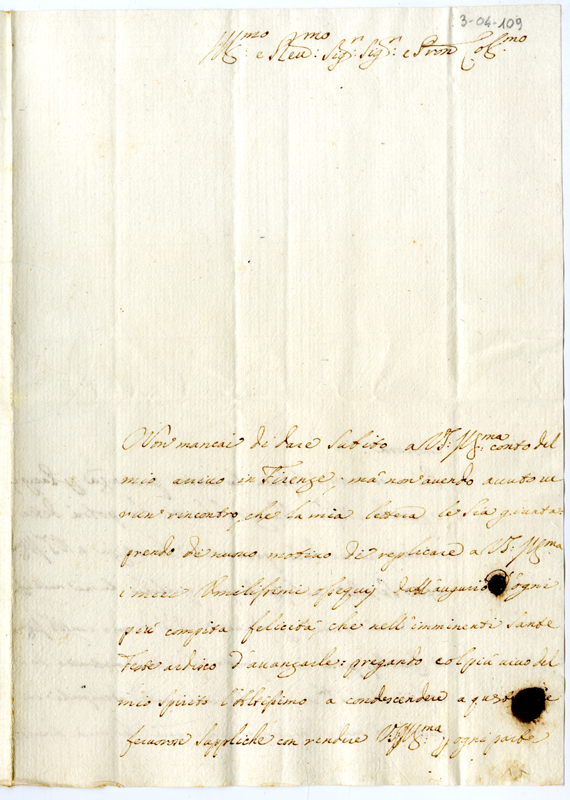 3-04-109
Ill:mo e Reu:mo Sig:r Sig:r e Pron Col:mo
Non mancai di dare subito a V.S. Ill:ma conto del
mio arriuo in Firenze; ma non auendo auuto ue
run rincontro, che la mia lettera le sia
prendo di nuouo motiuo di replicare a V.S. Ill:ma
i miei Umilissimi ossequij dall'augurio d'ogni
più compita felicità che nell'imminenti Sante
Feste ardisco d'auanzarle: pregando col più uiuo del
mio spirito l'Altissimo a condescendere a queste
feruorose suppliche con rendere V.S. Ill:ma p ogni parte